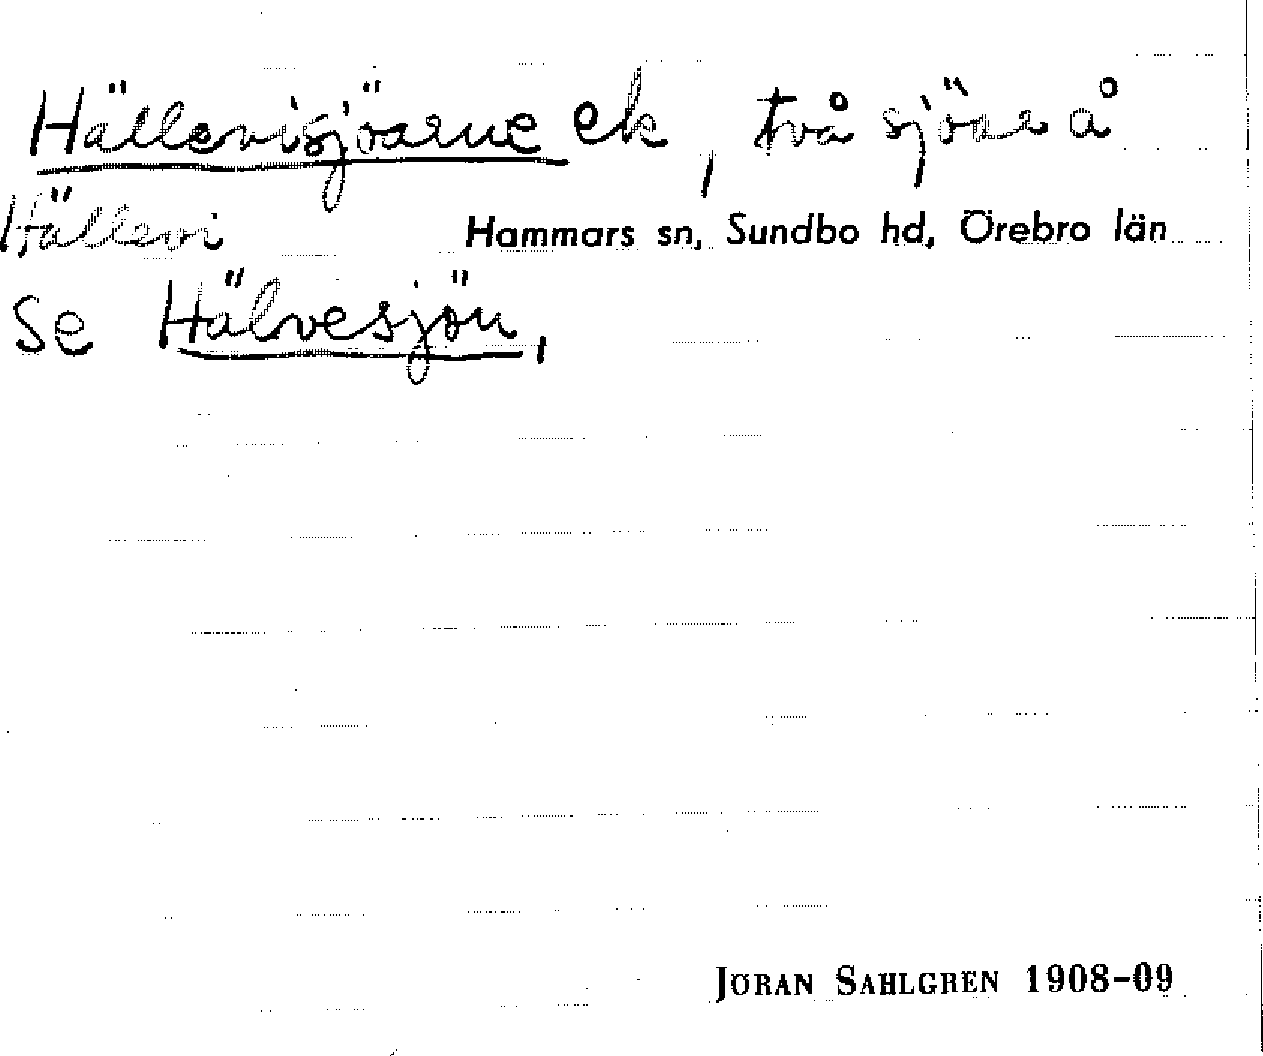 Hällevisjöarne ek, två sjöar å
Hällevi Hammars sn, Sundbo hd, Örebro län
se Hälvesjön,
JÖRAN SAHLGREN 1908-09